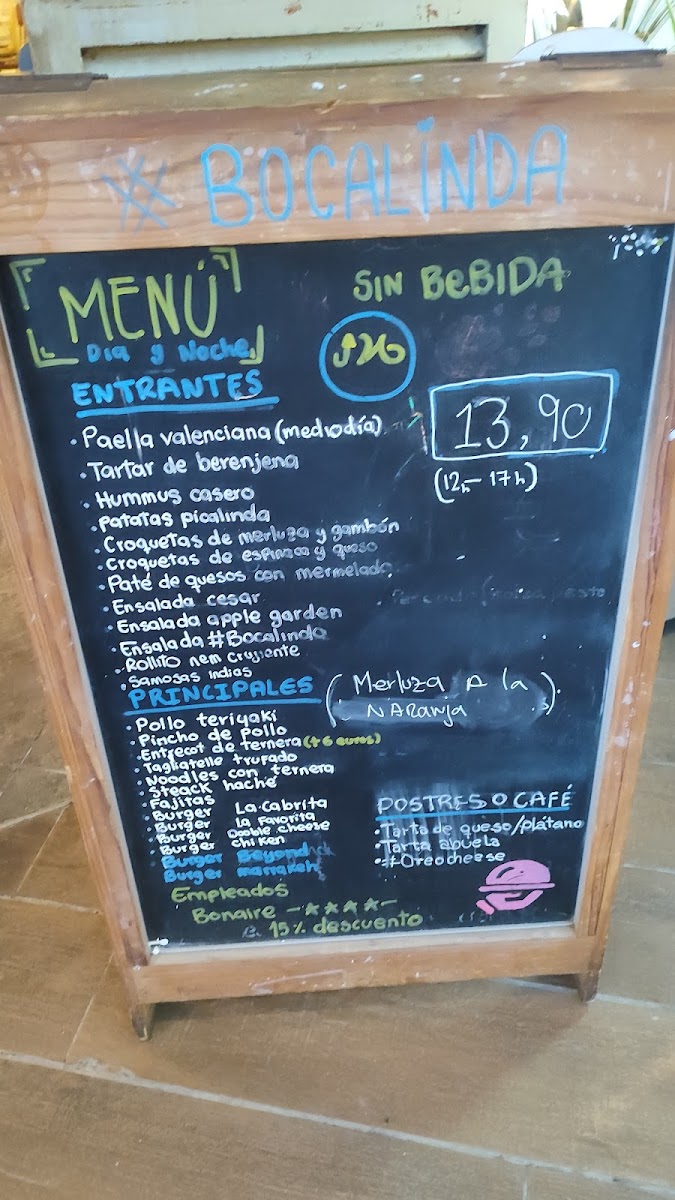 # BOCALINDA
MENÚ
Dia y Noche
SIN BeBIDA
ENTRANTES
13,90
(12h - 17h)
• Paella valenciana (mediodía)
• Tartar de berenjena
• Hummus casero
• Patatas picalinda
• Croquetas de merluza y gambón
• Croquetas de espinaca y queso
• Paté de quesos con mermelada
• Ensalada cesar
• Ensalada apple garden
• Ensalada #Bocalinda
• Rollito nem crujiente
• Samosas indias
PRINCIPALES
(Merluza A la
NARanja)
• Pollo teriyaki
• Pincho de pollo
• Entrecot de ternera (+6 euros)
• Tagliatelle trufado
• Noodles con ternera
• Steack haché
• Fajitas
• Burger La Cabrita
• Burger la Favorita
• Burger Dooble cheese
• Burger chiken
• Burger
Burger
POSTRES O CAFÉ
• Tarta de queso/plátano
• Tarta abuela
• #Oreocheese
Empleados
Bonaire -★★★★-
15% descuento